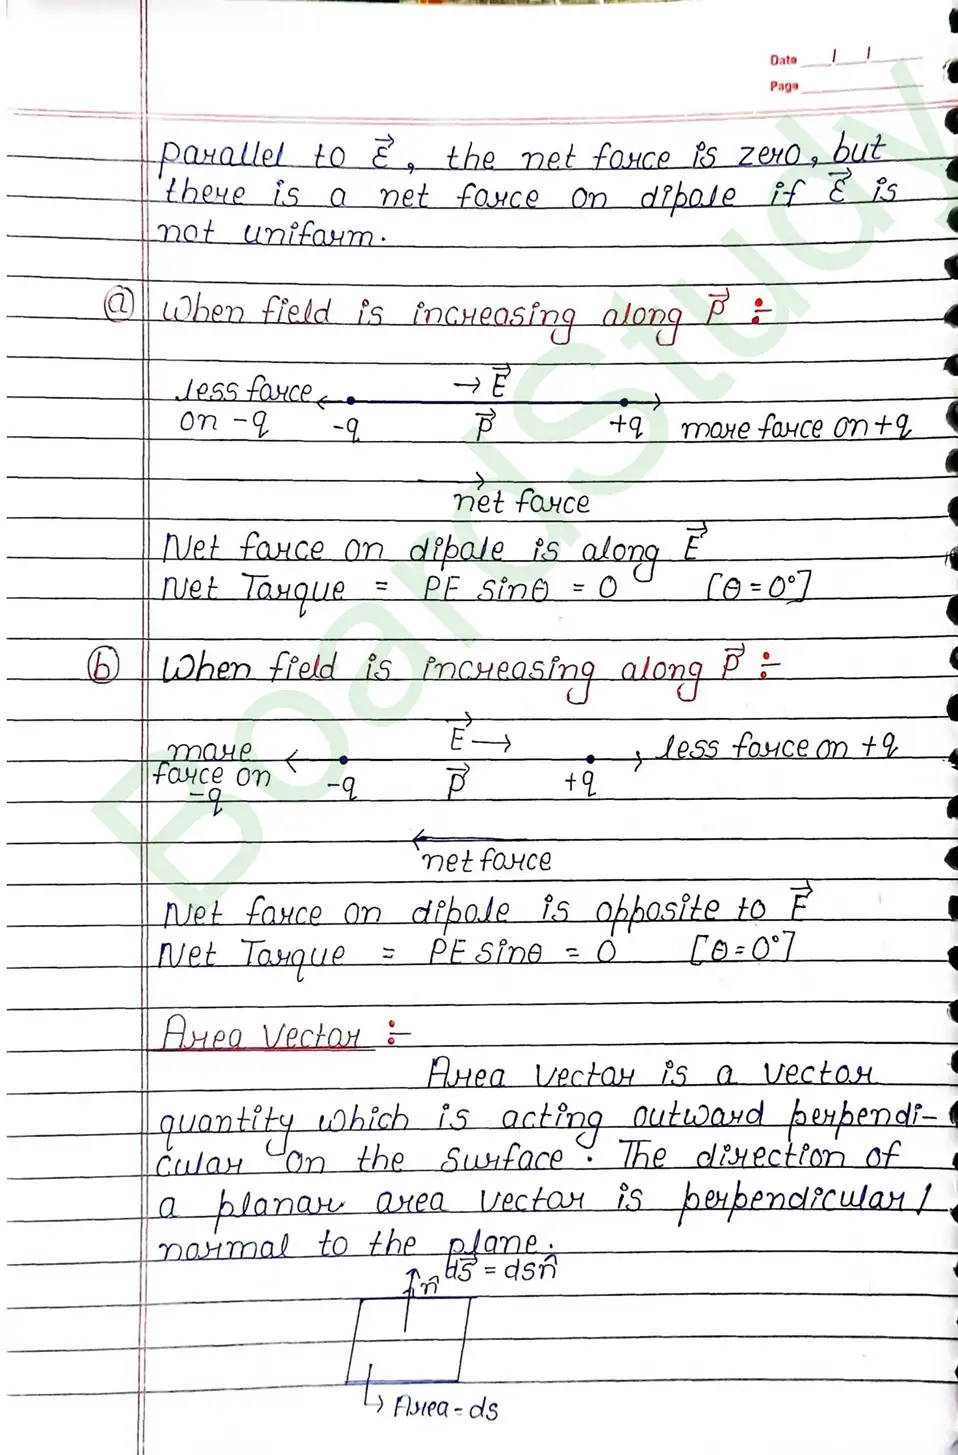 Date
Page
parallel to E⃗, the net force is zero, but
there is a net force on dipole if E⃗ is
not uniform.
(a) When field is increasing along P⃗ :-
→ E⃗
less force
on -q
-q
P⃗
+q
more force on +q
net force
Net force on dipole is along E⃗
Net Torque = PE sinθ = 0 [θ = 0°]
(b) When field is increasing along P⃗ :-
E⃗ →
more
force on
-q
-q
P⃗
+q
less force on +q
net force
Net force on dipole is opposite to E⃗
Net Torque = PE sinθ = 0 [θ = 0°]
Area Vector :-
Area vector is a vector
quantity which is acting outward perpendi-
cular on the surface. The direction of
a planar area vector is perpendicular/
normal to the plane.
n̂ ds⃗ = dsn̂
Area - ds
BoardStudy